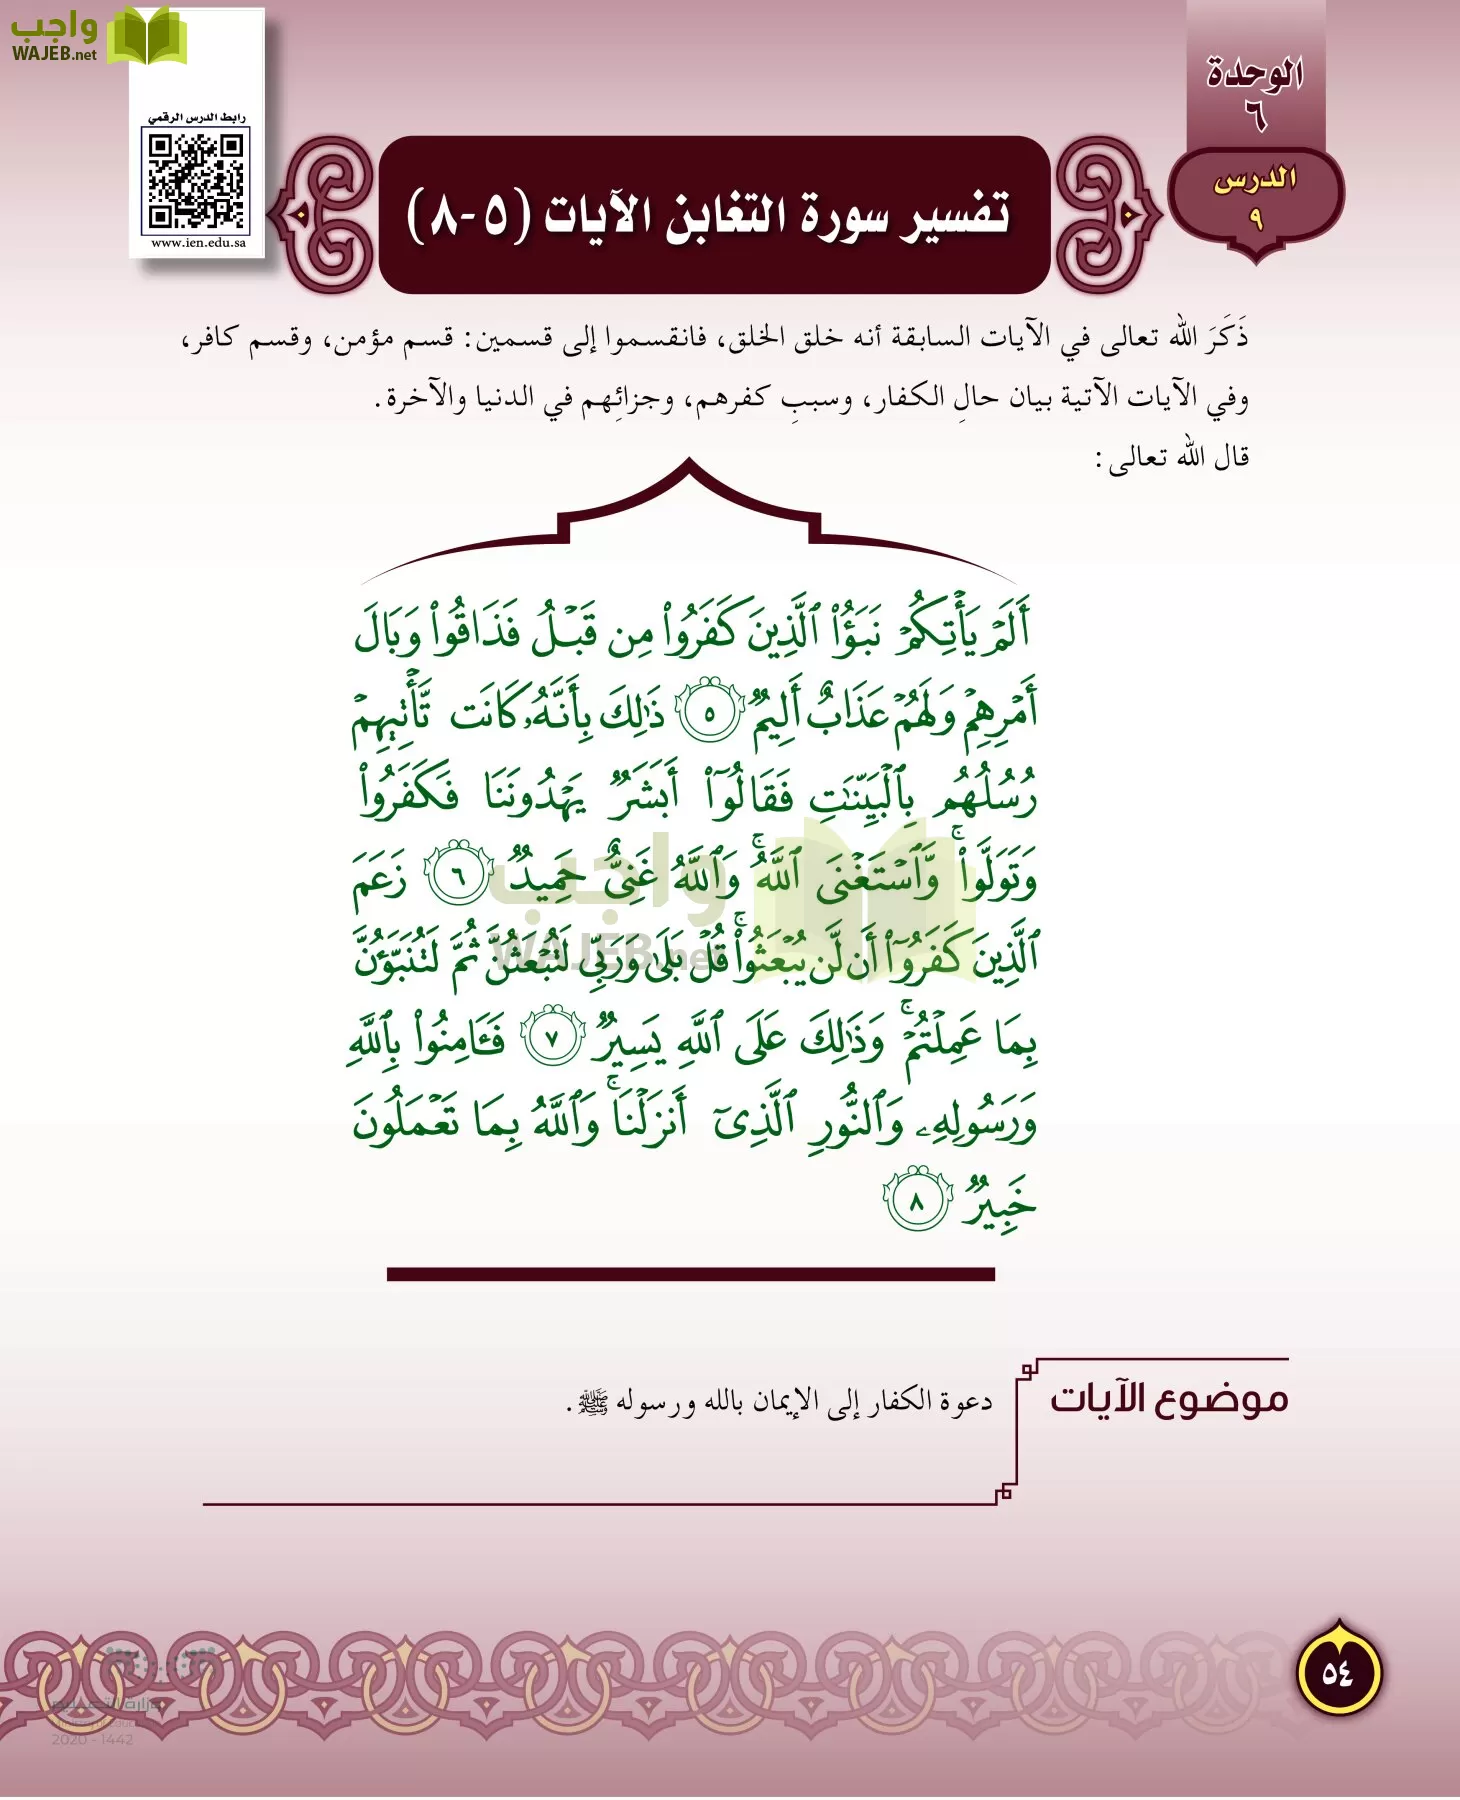 واجب
WAJEB.net
رابط الدرس الرقمي
www.ien.edu.sa
الوحدة
٦
الدرس
٩
تفسير سورة التغابن الآيات (٥-٨)
ذَكَرَ الله تعالى في الآيات السابقة أنه خلق الخلق، فانقسموا إلى قسمين: قسم مؤمن، وقسم كافر،
وفي الآيات الآتية بيان حالِ الكفار، وسببِ كفرهم، وجزائِهم في الدنيا والآخرة.
قال الله تعالى:
أَلَمْ يَأْتِكُمْ نَبَؤُا۟ ٱلَّذِينَ كَفَرُوا۟ مِن قَبْلُ فَذَاقُوا۟ وَبَالَ
أَمْرِهِمْ وَلَهُمْ عَذَابٌ أَلِيمٌ ٥ ذَٰلِكَ بِأَنَّهُۥ كَانَت تَّأْتِيهِمْ
رُسُلُهُم بِٱلْبَيِّنَٰتِ فَقَالُوٓا۟ أَبَشَرٌ يَهْدُونَنَا فَكَفَرُوا۟
وَتَوَلَّوا۟ۚ وَّٱسْتَغْنَى ٱللَّهُۚ وَٱللَّهُ غَنِىٌّ حَمِيدٌ ٦ زَعَمَ
ٱلَّذِينَ كَفَرُوٓا۟ أَن لَّن يُبْعَثُوا۟ۚ قُلْ بَلَىٰ وَرَبِّى لَتُبْعَثُنَّ ثُمَّ لَتُنَبَّؤُنَّ
بِمَا عَمِلْتُمْۚ وَذَٰلِكَ عَلَى ٱللَّهِ يَسِيرٌ ٧ فَـَٔامِنُوا۟ بِٱللَّهِ
وَرَسُولِهِۦ وَٱلنُّورِ ٱلَّذِىٓ أَنزَلْنَاۚ وَٱللَّهُ بِمَا تَعْمَلُونَ
خَبِيرٌ ٨
واجب
WAJEB.net
موضوع الآيات
دعوة الكفار إلى الإيمان بالله ورسوله ﷺ.
وزارة التعليم
2020 - 1442
٥٤